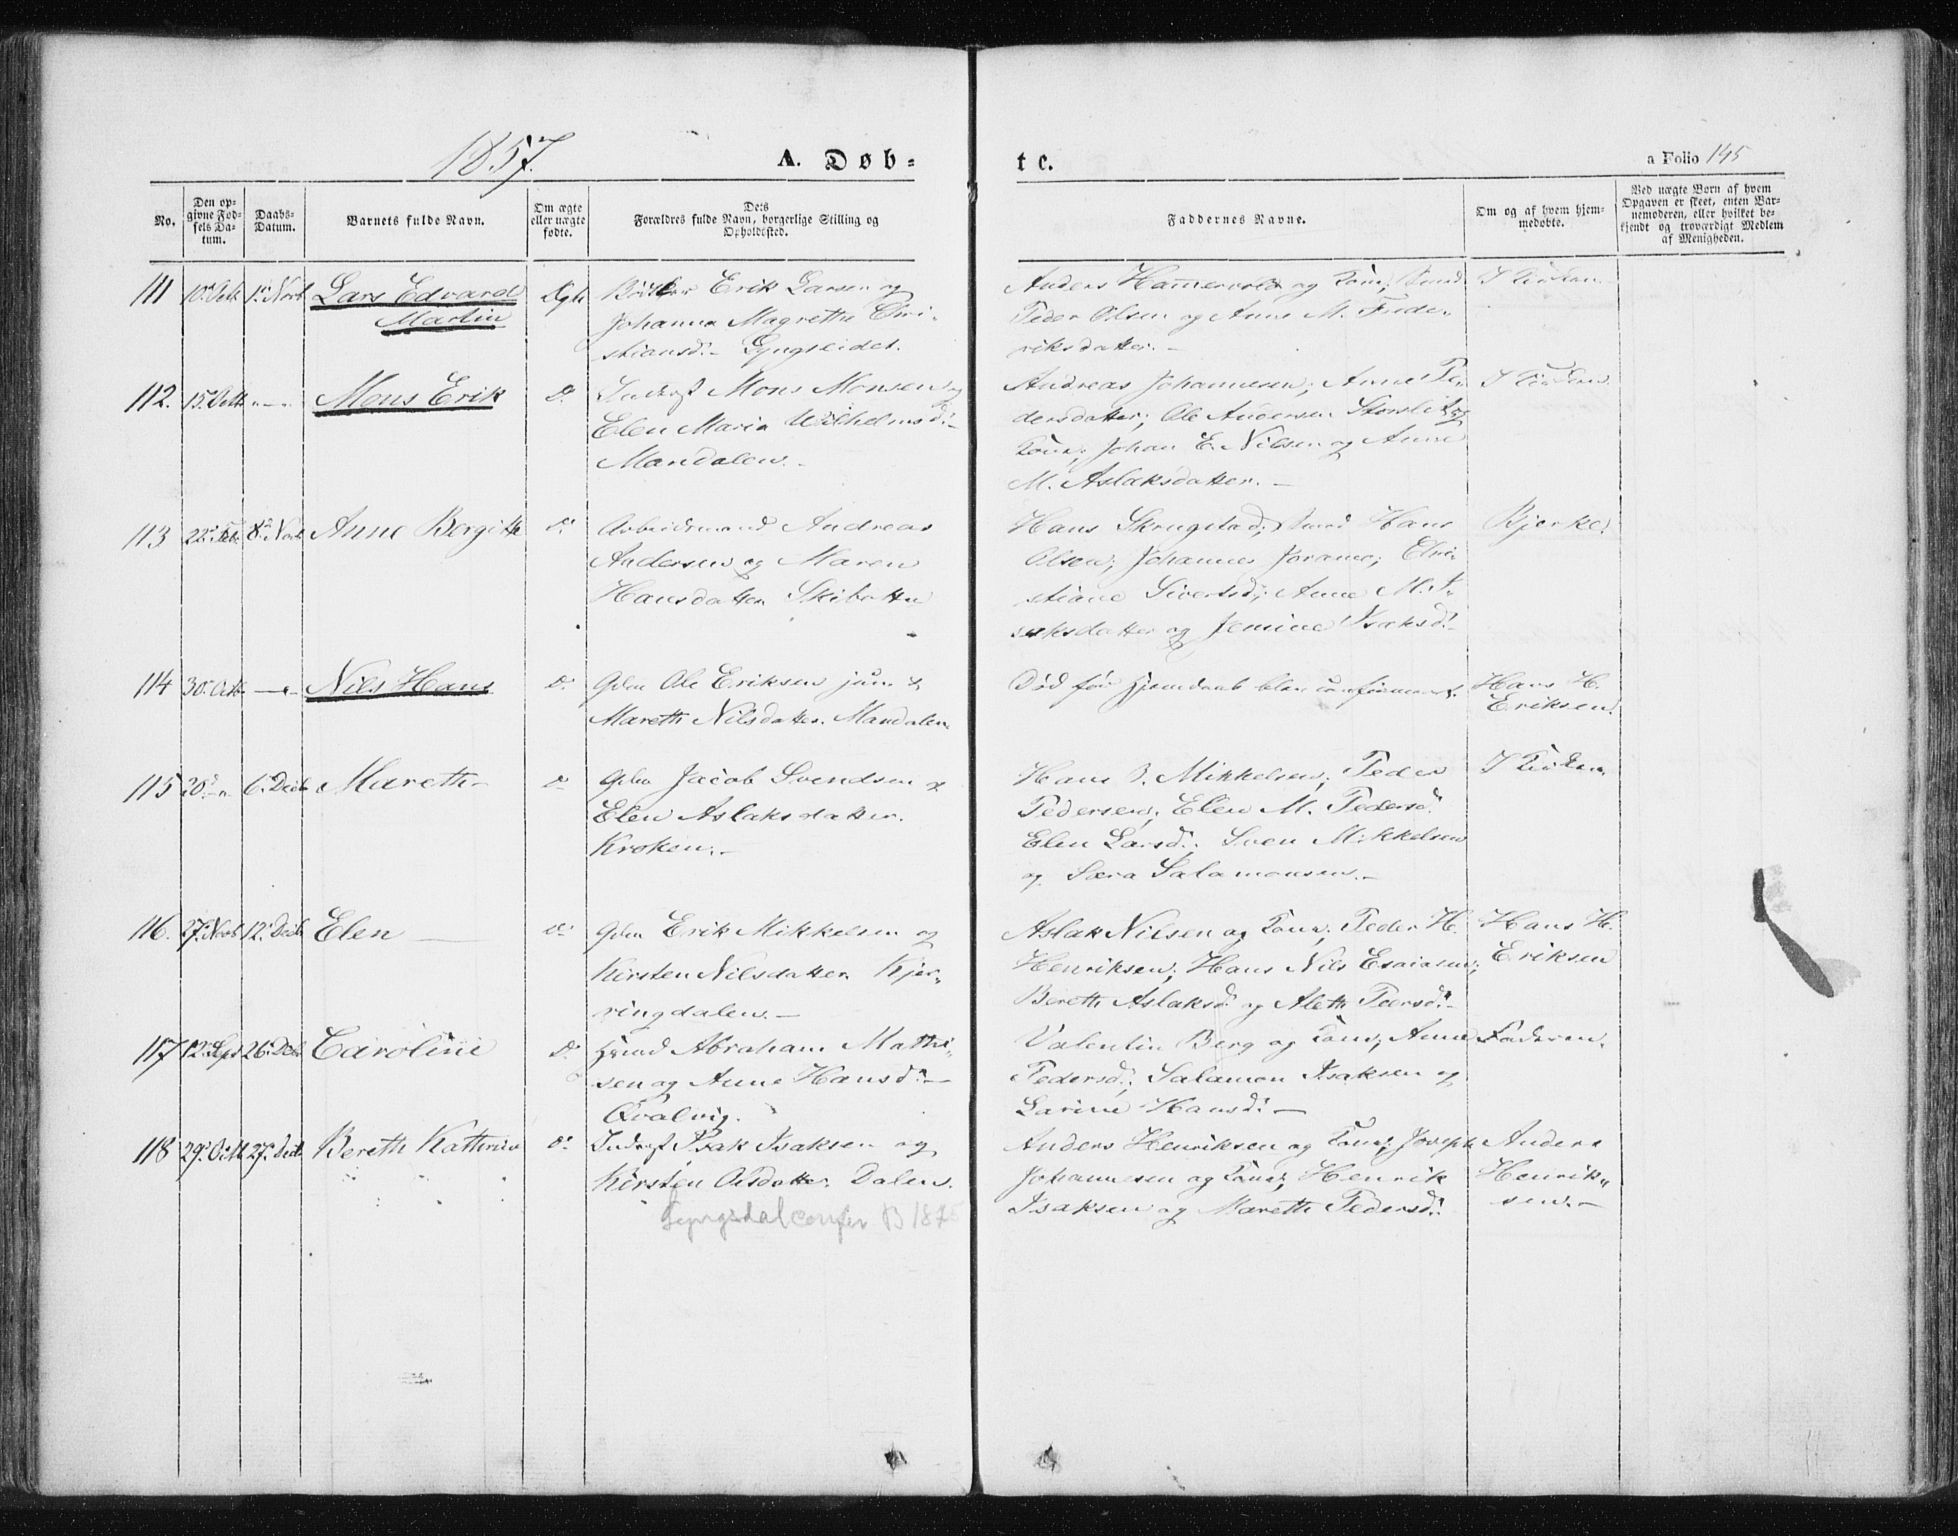 1857.
A. Døb-
te.
a Folio 145
No.
Den op-
givne Fød-
sels Da-
tum.
Daabs-
Datum.
Barnets fulde Navn.
Om ægte
eller uægte
fødte.
Dets
Forældres fulde Navn, borgerlige Stilling og
Opholdssted.
Faddernes Navne.
Om og af hvem hjem-
medøbte.
Ved uægte Børn af hvem
Opgaven er skeet, enten Bar-
nemoderen, eller hvilket be-
kjendt og troværdigt Medlem
af Menigheden.
111 10 Octb 1 Novb Lars Edvard
Martin
Ægte
Erik Larsen og
Johanna Magrethe Chri-
stiansd. Lyngseidet.
Anders Hammervold og Kone,
Peder Olsen og Anne M. Frede-
riksdatter.
I Kirken
112. 15 Octb Mons Erik
Do
Inderst Mons Monsen og
Elen Maria Wilhelmsd.
Mandalen.
Andreas Johannesen; Anne Pe-
dersdatter; Ole Andersen Storslet og
Kone; Johan E. Nilsen og Anne
M. Aslaksdatter.
I Kirken
113 22 8 Novb Anne Bergitte
Do
Arbeidsmand Andreas
Andersen og Maren
Hansdatter Skibotten
Hans Skrugstad; Hans
Olsen; Johannes Joramo; Chri-
stiane Sivertsd; Anne M. I-
saksdatter og Jemine Isaksd.
Bjerke.
114 30 Octb Nils Hans
Do
Gbr Ole Eriksen jun &
Mareth Nilsdatter. Mandalen
Død før Hjemdaab blev confirmeret.
Hans H.
Eriksen.
115 6 Decb Mareth
Do
Gbr Jacob Svendsen &
Elen Aslaksdatter.
Kroken.
Hans Mikkelsen; Peder
Pedersen; Elen M. Pedersd.
Elen Larsd; Sven Mikkelsen
og Sara Salamonsen.
I Kirken
116. 27 Novb 12 Decb Elen
Do
Gbr Erik Mikkelsen og
Kirsten Nilsdatter Kjer-
ringdalen.
Aslak Nilsen og Kone, Peder H.
Henriksen; Hans Nils Esaiasen;
Bereth Aslaksd og Aleth Peersd.
Hans H.
Eriksen
117 12 Sept 26 Decb Caroline
Do
Abraham Mathi-
sen og Anne Hansd.
Qvalvig.
Valentin Berg og Kone; Anne
Pedersd; Salamon Isaksen og
Larine Hansd.
Faderen.
118 29 Octb 27 Decb Bereth Kathrine
Do
Inderst Isak Isaksen og
Kirsten Olsdatter Dalen.
Lyngsdal confer B 187
Anders Henriksen og Kone; Joseph
Johannesen og Kone; Henrik
Isaksen og Mareth Pedersd.
Anders
Henrik-
sen.